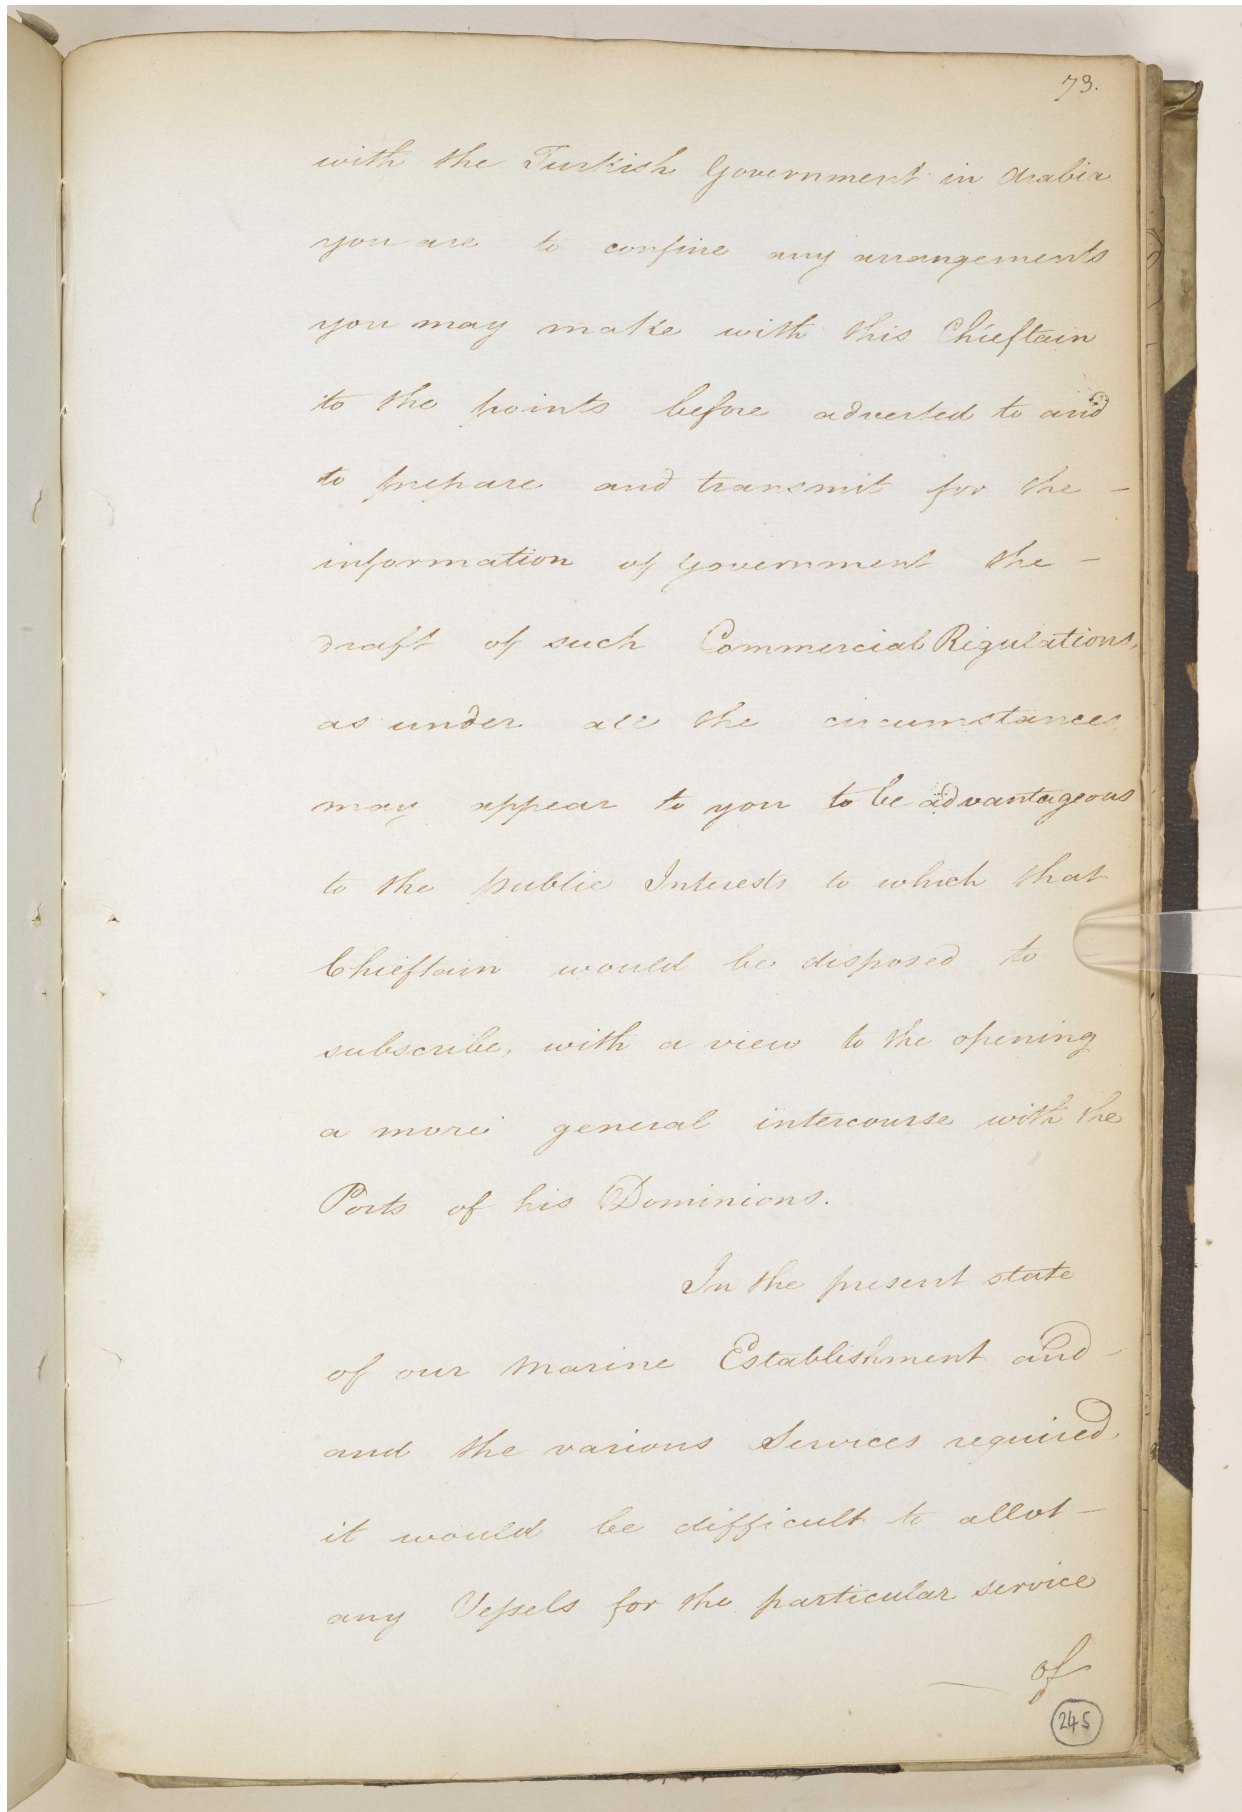 73.
with the Turkish Government in Arabia
you are to confine any arrangements
you may make with this Chieftain
to the points before adverted to and
to prepare and transmit for the -
information of Government the -
draft of such Commercial Regulations,
as under all the circumstances
may appear to you to be advantageous
to the public Interests to which that
Chieftain would be disposed to
subscribe, with a view to the opening
a more general intercourse with the
Ports of his Dominions.
In the present state
of our Marine Establishment and -
and the various Services required,
it would be difficult to allot -
any Vessels for the particular service
of
245